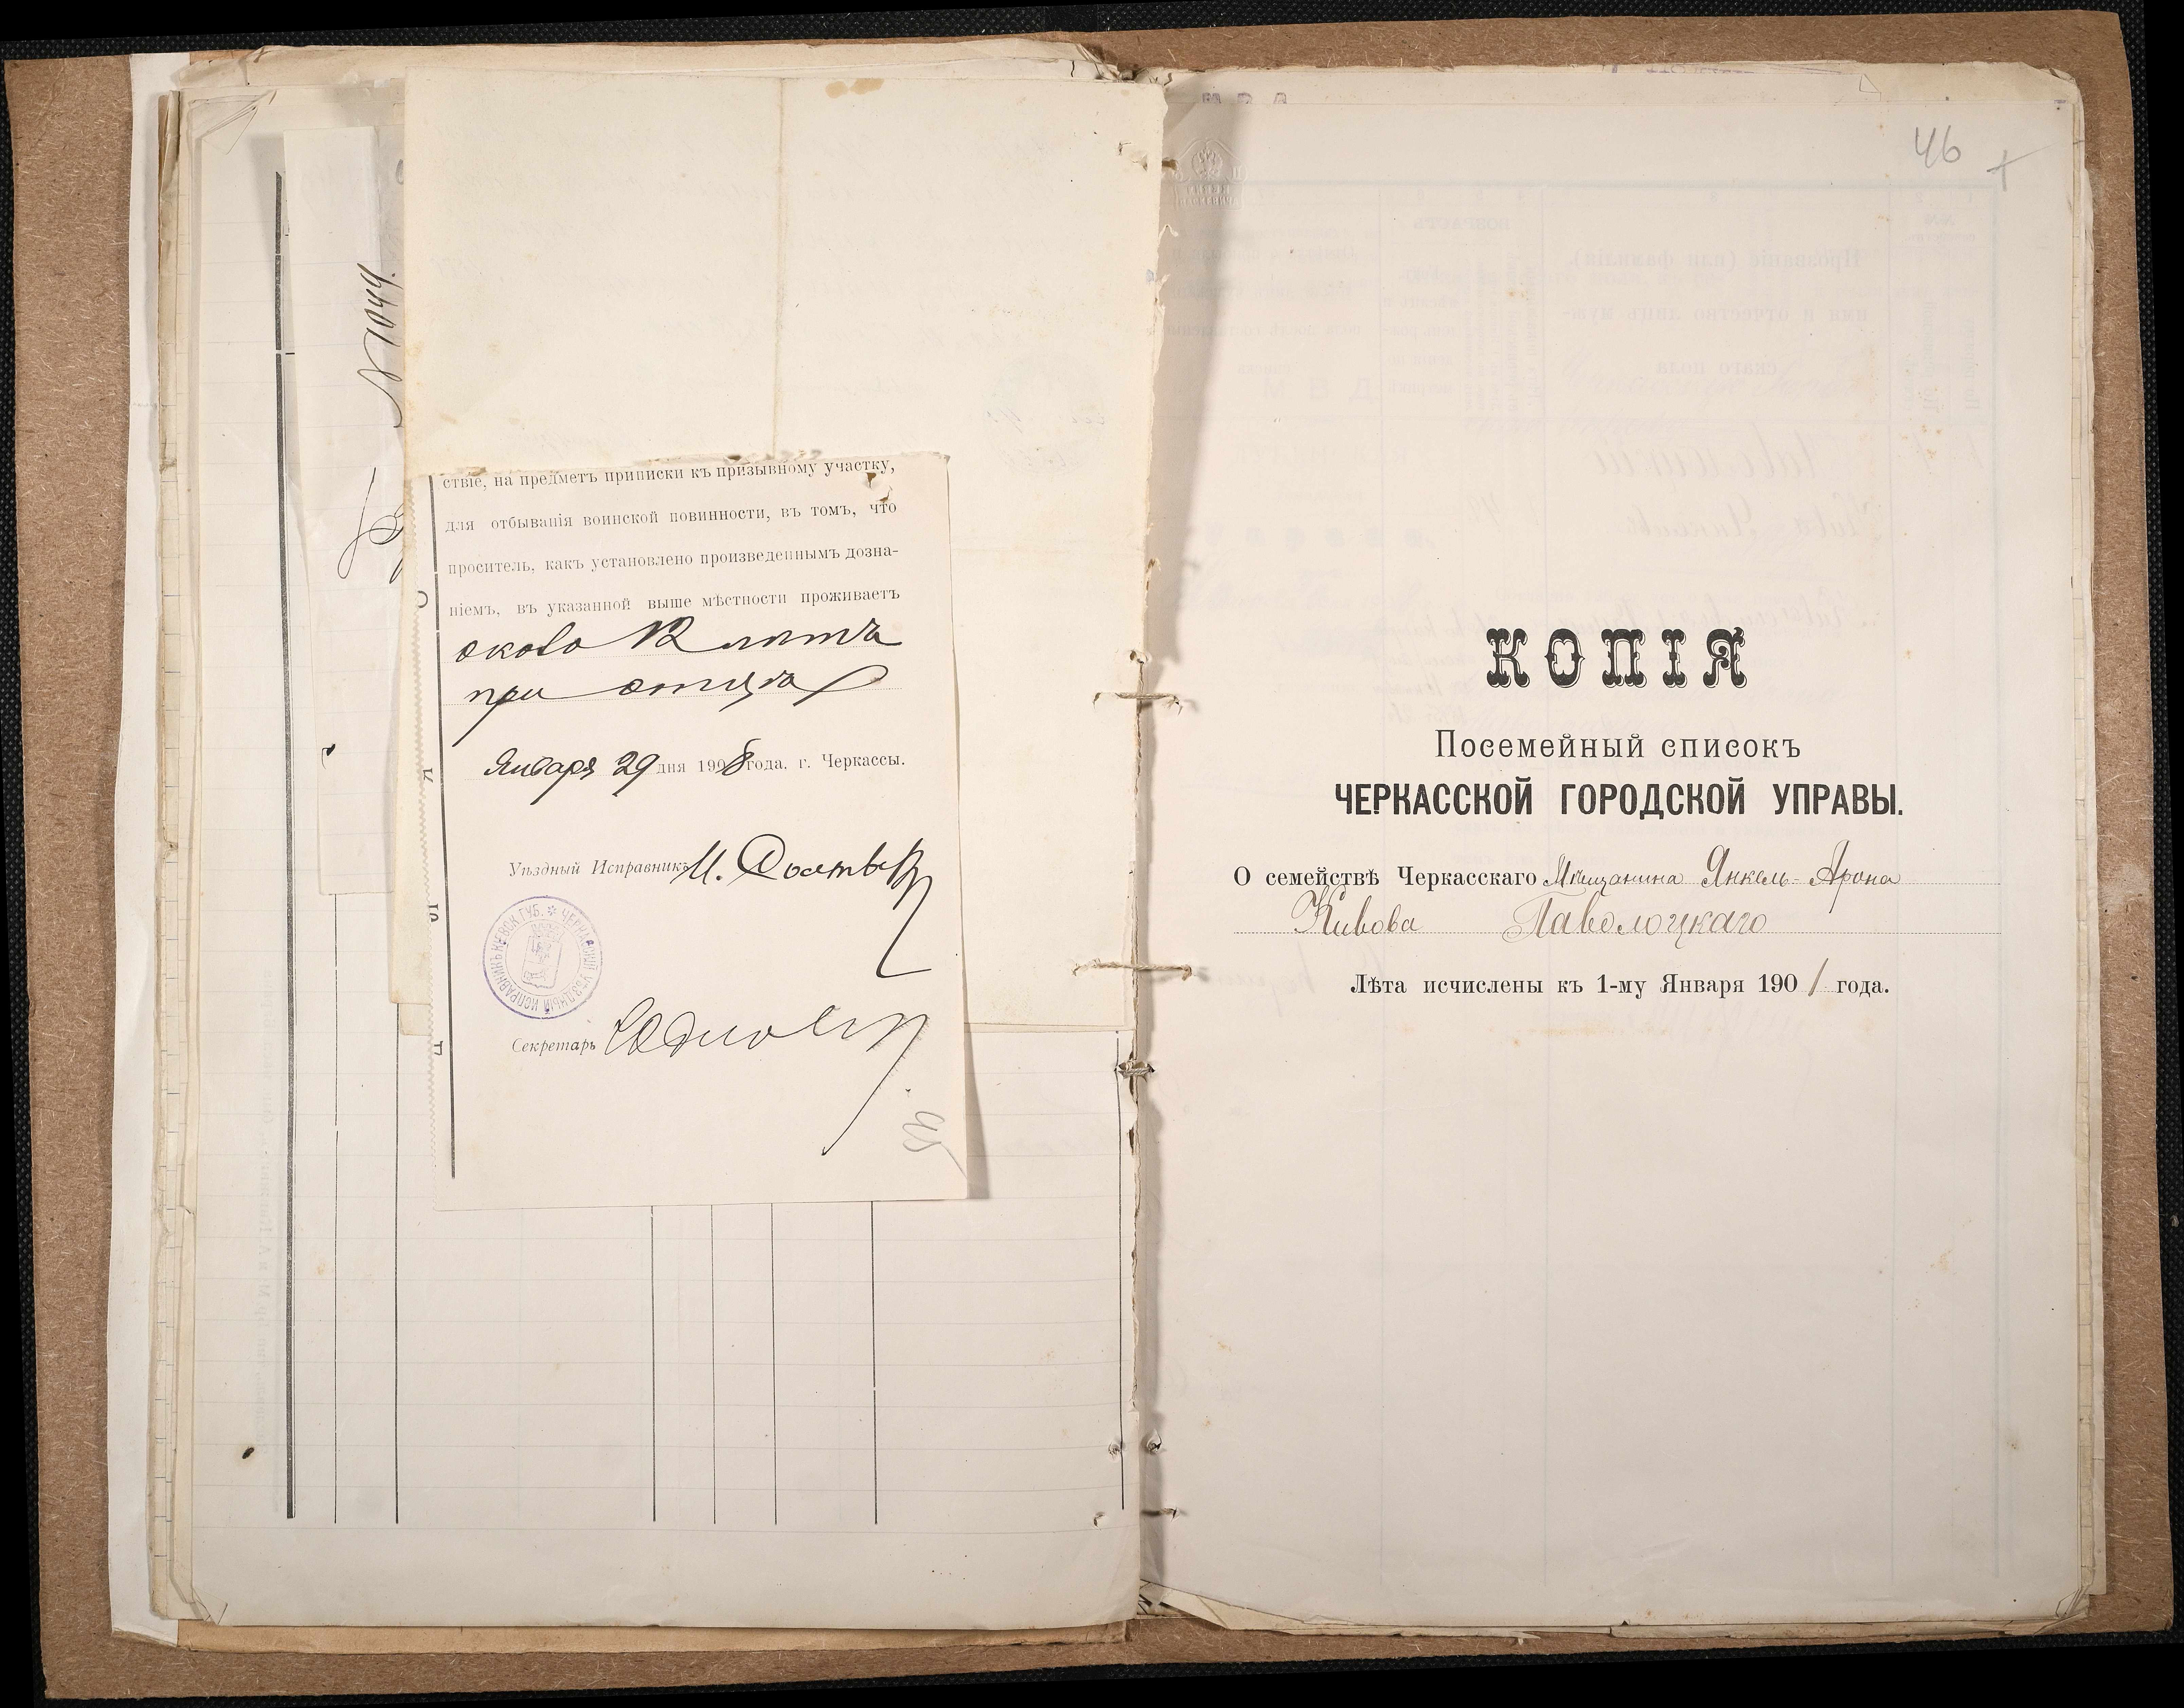 N 1044.
ствіе, на предметъ приписки къ призывному участку,
для отбыванія воинской повинности, въ томъ, что
проситель, какъ установлено произведеннымъ дозна-
ніемъ, въ указанной выше мѣстности проживаетъ
около 12 лѣтъ
при отцѣ
Января 29 дня 1908 года, г. Черкассы.
Уѣздный Исправникъ И.
ЧЕРКАССКІЙ УѢЗДНЫЙ ИСПРАВНИКЪ КІЕВСК. ГУБ.
Секретарь
45
46
КОПІЯ
Посемейный списокъ
ЧЕРКАССКОЙ ГОРОДСКОЙ УПРАВЫ.
О семействѣ Черкасскаго Мѣщанина Янкель-Арона
Кивова Паволоцкаго
Лѣта исчислены къ 1-му Января 1901 года.